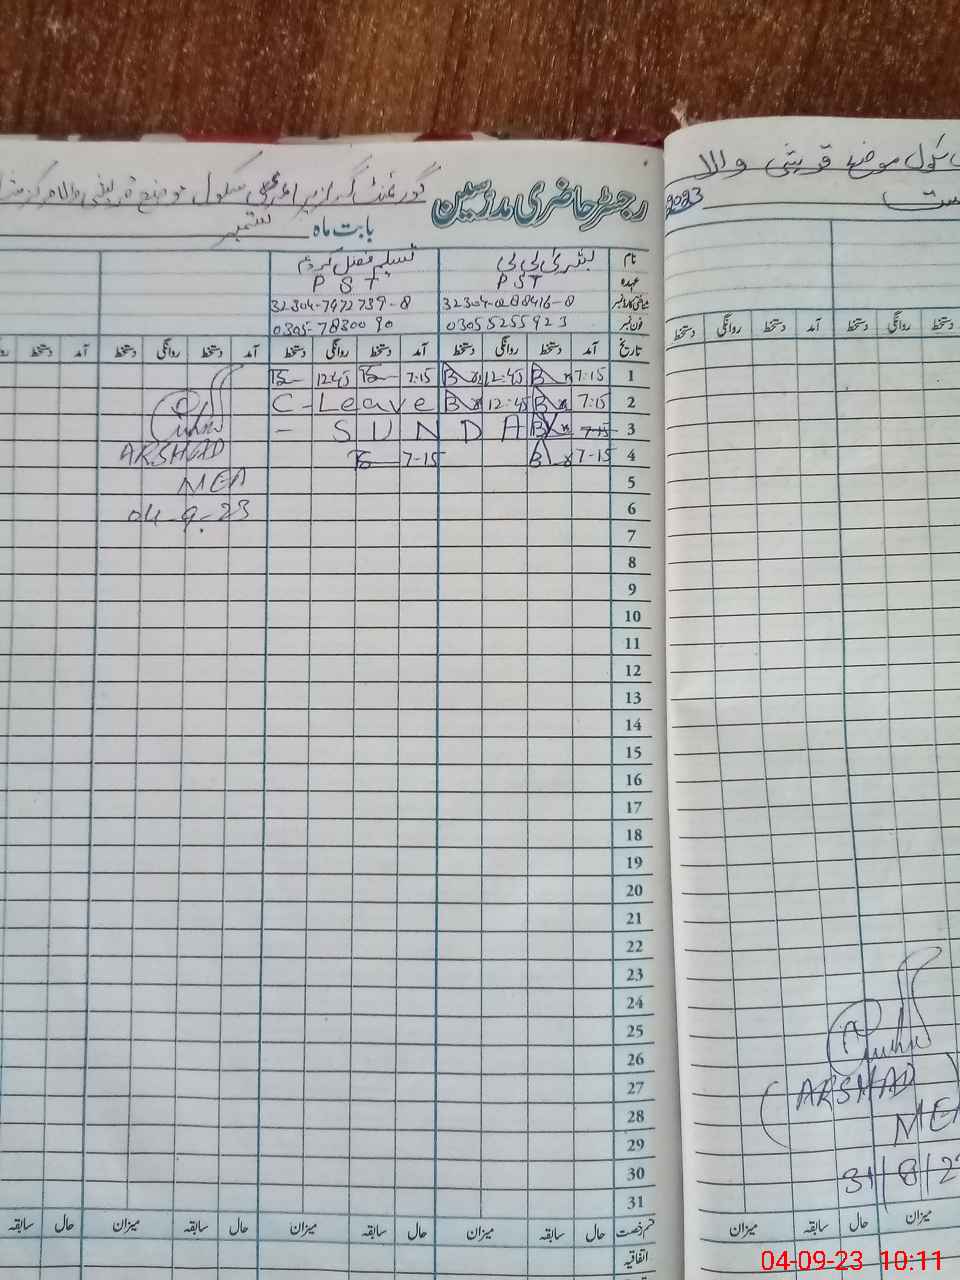 رجسٹر حاضری مدرسین
گورنمنٹ گرلز پرائمری سکول موضع قریشی والا مرکز
بابت ماہ ستمبر
نام بشریٰ بی بی تسلیم فضل کریم
عہدہ PST PST
شناختی کارڈ نمبر 32304-0288416-8 32304-7972739-8
فون نمبر 03055255923 0305-7830090
تاریخ آمد دستخط روانگی دستخط آمد دستخط روانگی دستخط آمد دستخط روانگی دستخط آمد دستخط
1 7:15 12:45 7:15 12:45
2 7:15 12:45 C-Leave
3 7-15 - SUNDA
4 7-15 7-15
5
6
7
8
9
10
11
12
13
14
15
16
17
18
19
20
21
22
23
24
25
26
27
28
29
30
31
ARSHAD
MEA
04-9-23
قسم رخصت حال سابقہ میزان حال سابقہ میزان حال سابقہ میزان حال سابقہ
اتفاقیہ
سکول موضع قریشی والا
2023
دستخط روانگی آمد دستخط روانگی دستخط
دستخط
(ARSHAD)
MEA
31/8/2
میزان حال سابقہ میزان
04-09-23 10:11